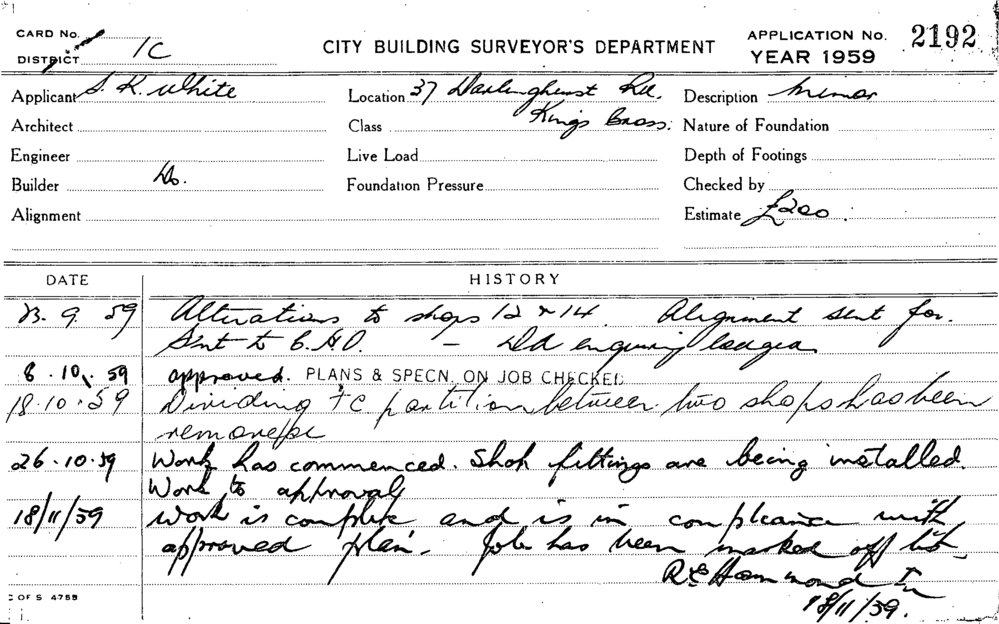 CARD No.
DISTRICT 1C
CITY BUILDING SURVEYOR'S DEPARTMENT
APPLICATION No. 2192
YEAR 1959
Applicant S. R. White
Location 37 Darlinghurst Rd.
Kings Cross.
Description Minor
Architect
Class
Nature of Foundation
Engineer
Live Load
Depth of Footings
Builder Do.
Foundation Pressure
Checked by
Alignment
Estimate £200
DATE HISTORY
23.9.59 Alterations to shops 12 & 14. Alignment sent for.
Sent to C.H.O. -
8.10.59 approved. PLANS & SPECN. ON JOB CHECKED
18.10.59 Dividing partition between two shops has been
26.10.59 Work has commenced. Shop fittings are being installed.
Work to approval
18/11/59 Work is complete and is in compliance with
approved plan. Job has been marked off list
R E Hammond
18/11/59.
C OF S 4755